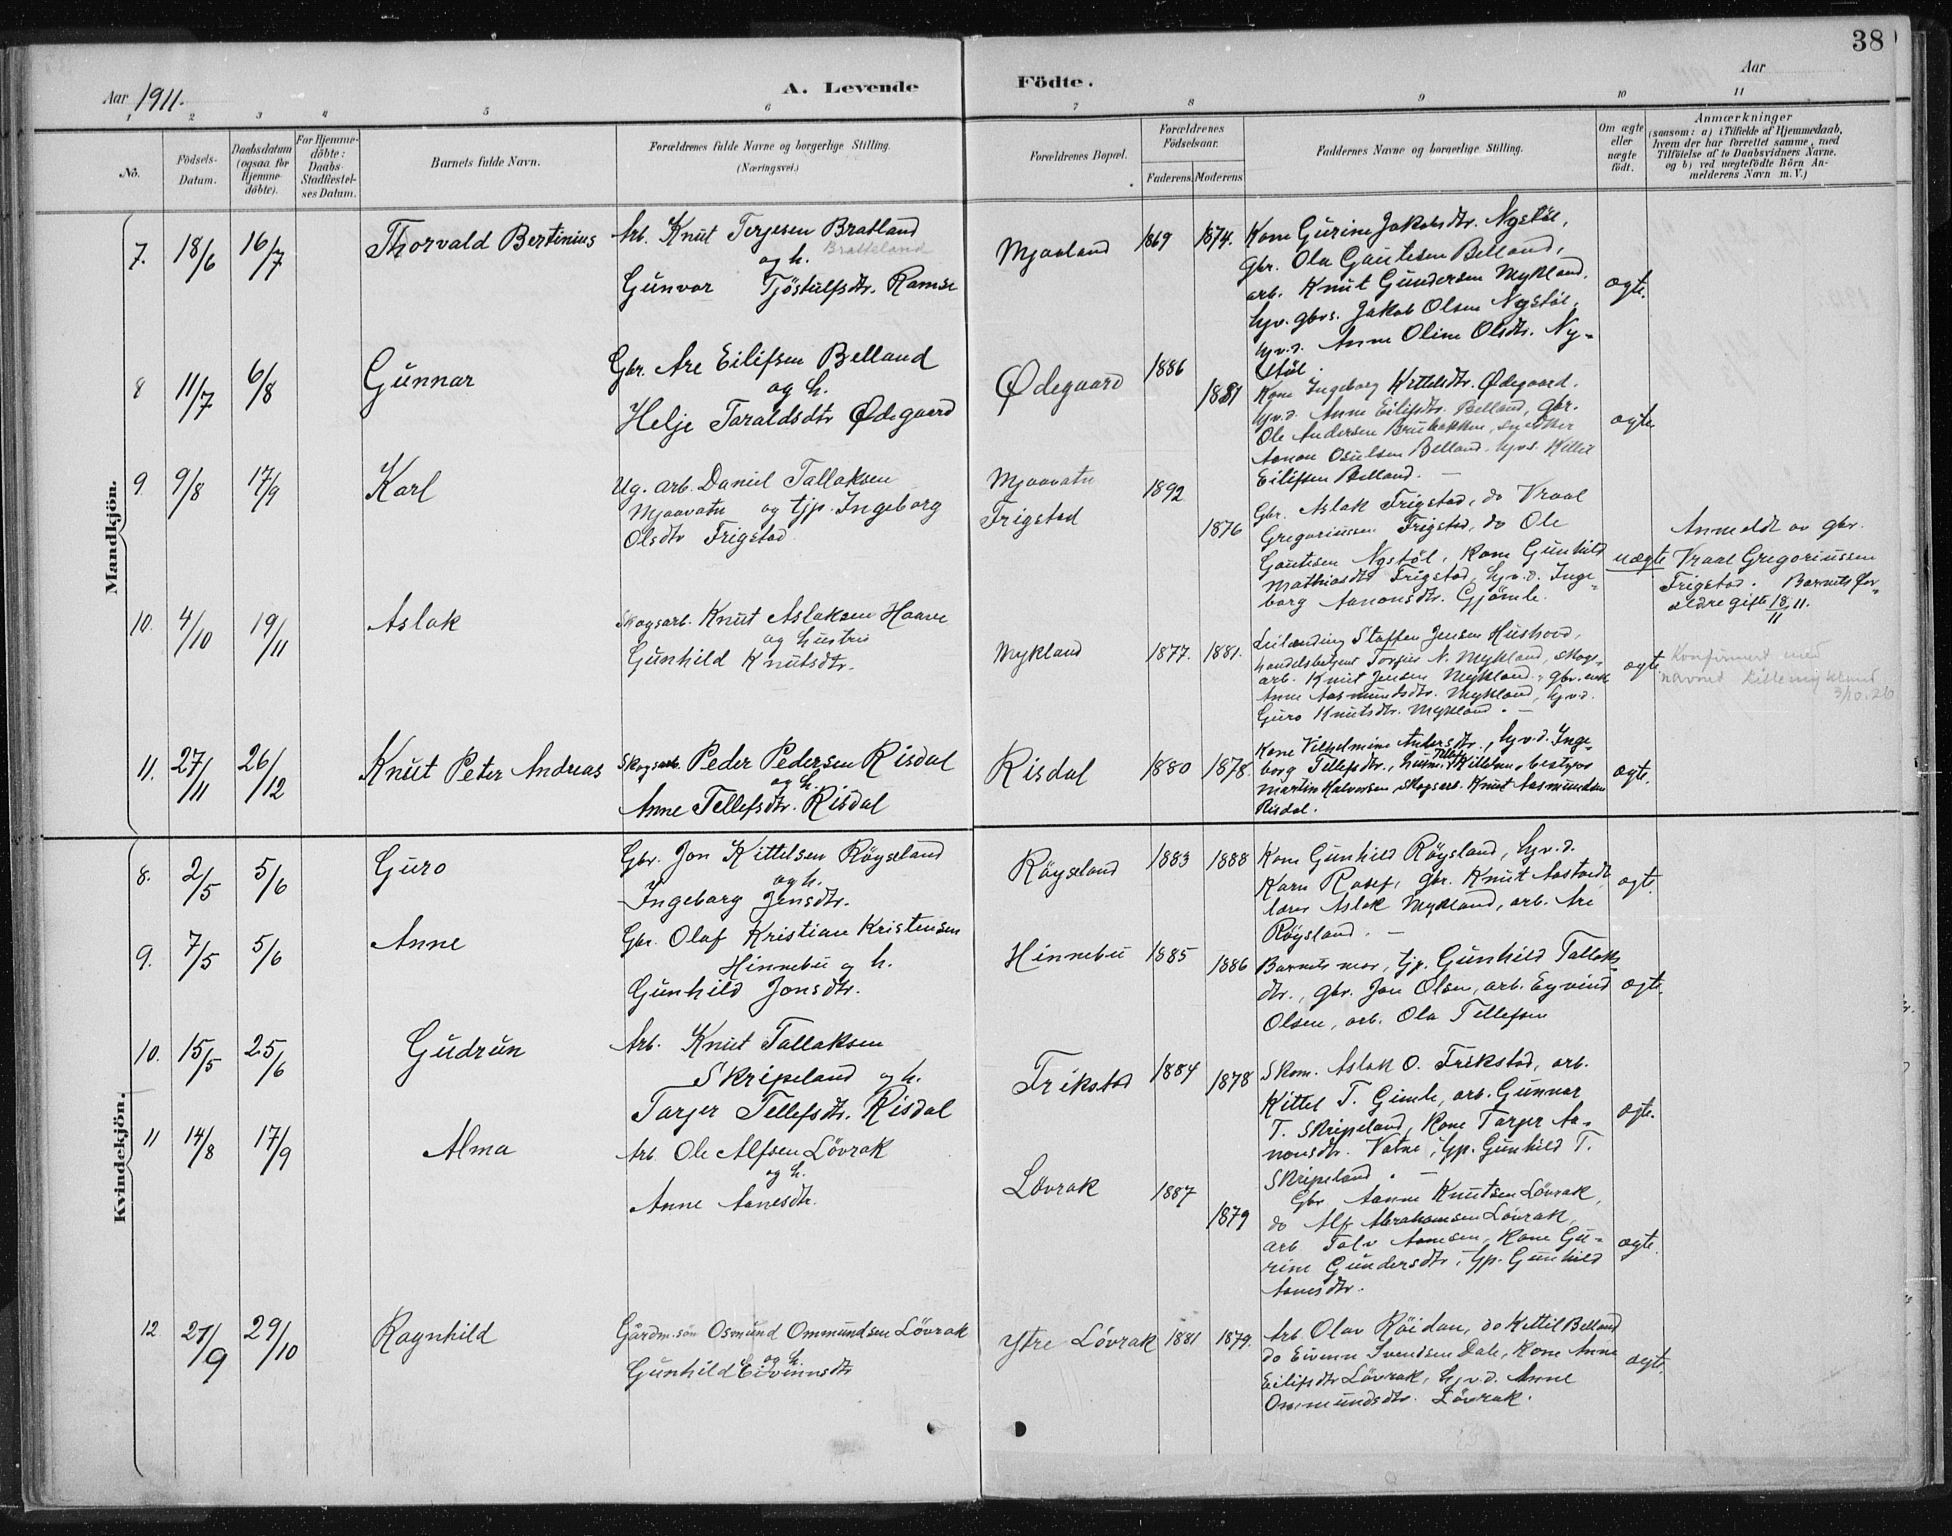 38
Aar 1911.
A. Levende Födte.
Aar
1 2 3 4 5 6 7 8 9 10 11
No.
Födsels-
Datum.
Daabsdatum
(ogsaa for
Hjemme-
döbte).
For Hjemme-
döbte:
Daabs-
Stadfæstel-
ses Datum.
Barnets fulde Navn.
Forældrenes fulde Navne og borgerlige Stilling.
(Næringsvei.)
Forældrenes Bopæl.
Forældrenes
Födselsaar.
Faderens Moderens
Faddernes Navne og borgerlige Stilling.
Om ægte
eller
uægte
födt.
Anmærkninger
(saasom: a) i Tilfælde af Hjemmedaab,
hvem der har forrettet samme, med
Tilföielse af to Daabsvidners Navne.
og b) ved uægtefödte Börn An-
melderens Navn m. V.)
Mandkjön.
7. 18/6 16/7 Thorvald Bertinius
Arb. Knut Terjesen Bratland
og h. Bratteland
Gunvor Tjöstulfsdtr. Ramse
Mjaaland 1869 1874.
Kone Gurine Jakobsdtr. Nystöl,
gbr. Ola Gautesen Belland,
arb. Knut Gundersen Mykland.
hjv. gbrs. Jakob Olsen Nystöl,
hjv.d. Anne Oline Olsdtr. Ny-
stöl.
ægte.
8 11/7 6/8 Gunnar
Gbr. Are Eilifsen Belland
og h.
Helje Taraldsdtr Ødegaard
Ødegaard 1886 1881
Kone Ingeborg Kittelsdtr. Ødegaard.
hjv.d. Anne Eilifsdtr. Belland, gbr.
Ole Andersen Brubakken, snekker
Aanon Osulsen Belland. hjv.s. Kittil
Eilifsen Belland. —
ægte
9. 9/8 17/9 Karl
Ug. arb. Daniel Tallaksen
Mjaavatn og tjp. Ingeborg
Olsdtr Frigstad
Mjaavatn
Frigstad
1892 1876
Gbr. Aslak Frigstad, do Vraal
Gregoriussen Frigstad, do Ole
Gautesen Nystöl, Kone Gunhild
Mathiasdtr Frigstad, hjv.d. Inge-
borg Aanonsdtr. Gjömle.
uægte
Anmeldt av gbr.
Vraal Gregoriussen
Frigstad. Barnets for-
ældre gifte 18/11 11.
10. 4/10 19/11 Aslak
Skogsarb. Knut Aslaksen Haave
og hustru
Gunhild Knutsdtr.
Mykland 1877. 1881.
Leilænding Staffen Jensen Hushovd,
handelsbetjent Torjus N. Mykland, skogs-
arb. Knut Jensen Mykland, gbr. enk
Anne Aasmundsdtr. Mykland, hjv.d.
Guro Knutsdtr. Mykland. —
ægte
Konfirmert med
navnet Lillemykland
3/10.26
11. 27/11 26/12 Knut Peter Andreas
Skogsarb. Peder Pedersen Risdal
og h.
Anne Tellefsdtr. Risdal
Risdal 1880 1878.
Kone Vilhelmine Andersdtr., hjv.d. Inge-
borg Tellefsdtr., bestyrer
Martin Halvorsen, Knut Aasmundsen
Risdal.
ægte.
Kvindekjön.
8. 2/5 5/6 Guro
Gbr. Jon Kittelsen Röyseland
og h.
Ingeborg Jensdtr.
Röyseland 1883 1888
Kone Gunhild Röysland, hjv.d.
Karn gbr. Knut
lærer Aslak Mykland, arb. Are
Röysland. —
ægte.
9. 7/5 5/6 Anne
Gbr. Olaf Kristian Kristensen
Hinnebu og h.
Gunhild Jonsdtr.
Hinnebu 1885 1886
Barnets mor, tjp. Gunhild Tallaks-
dtr., gbr. Jon Olsen, arb. Eyvind
Olsen, arb. Ola Tellefsen
ægte.
10. 15/5 25/6 Gudrun
Arb. Knut Tallaksen
Skripeland og h.
Tarjer Tellefsdtr. Risdal
Frikstad 1884 1878
Skom. Aslak O. Frikstad, arb.
Kittel T. Gimle, arb. Gunnar
T. Skripeland, Kone Tarjer Aa-
nonsdtr. Vatne, tjp. Gunhild T.
Skripeland. —
ægte.
11 14/8 17/9 Alma
Arb. Ole Alfsen Lövrak
og h.
Anne Aanesdtr.
Lövrak 1887 1879
Gbr Aanne Knutsen Lövrak,
do Alf Abrahamsen Lövrak,
arb. Talv Aanesen, Kone Gu-
rine Gundersdtr, tjp. Gunhild
Aanesdtr.
ægte.
12 21/9 29/10 Ragnhild
Gårdm.søn Osmund Ommundsen Lövrak
og h.
Gunhild Eivinnsdtr
Ytre Lövrak 1881 1879.
Arb. Olav Röidan, do Kettil Belland
do Eivinn Svendsen Dale, Kone Anne
Eilifsdtr Lövrak, hjv.d. Anne
Ommundsdtr. Lövrak.
ægte.